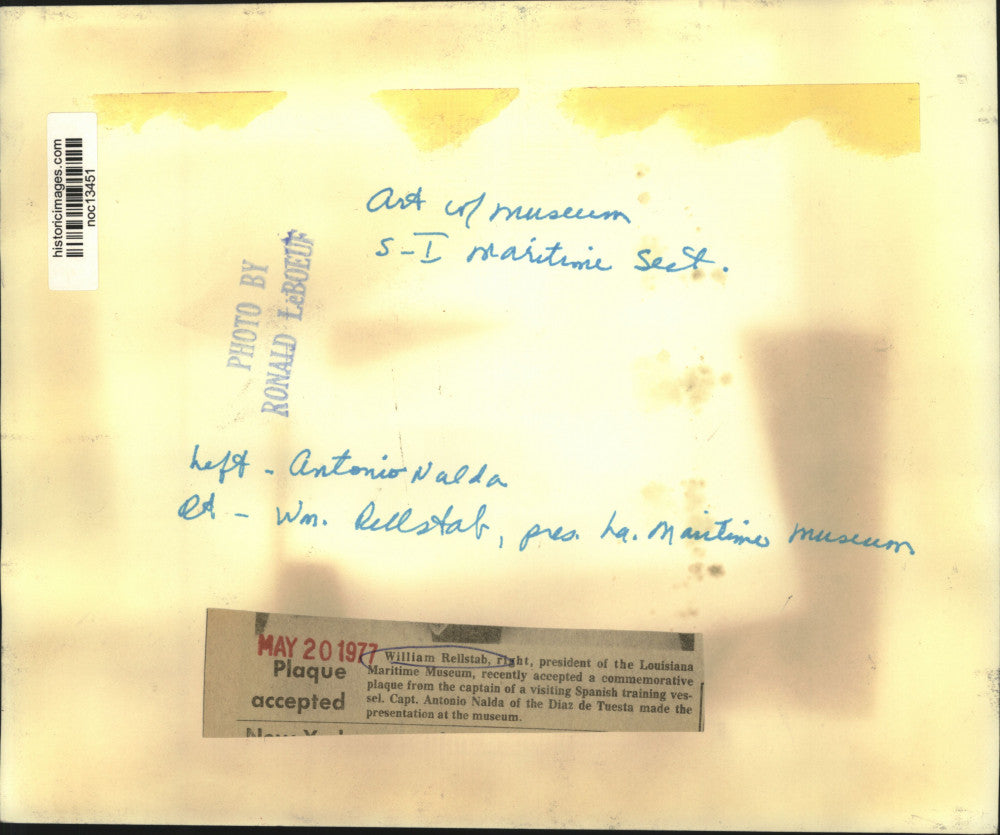 historicimages.com
noc13451
Art w/ museum
S-I Maritime Sect.
PHOTO BY
RONALD LeBOEUF
Left - Antonio Nalda
Rt - Wm. Rellstab, pres. La. Maritime Museum
MAY 20 1977
Plaque
accepted
William Rellstab, right, president of the Louisiana
Maritime Museum, recently accepted a commemorative
plaque from the captain of a visiting Spanish training ves-
sel. Capt. Antonio Nalda of the Diaz de Tuesta made the
presentation at the museum.